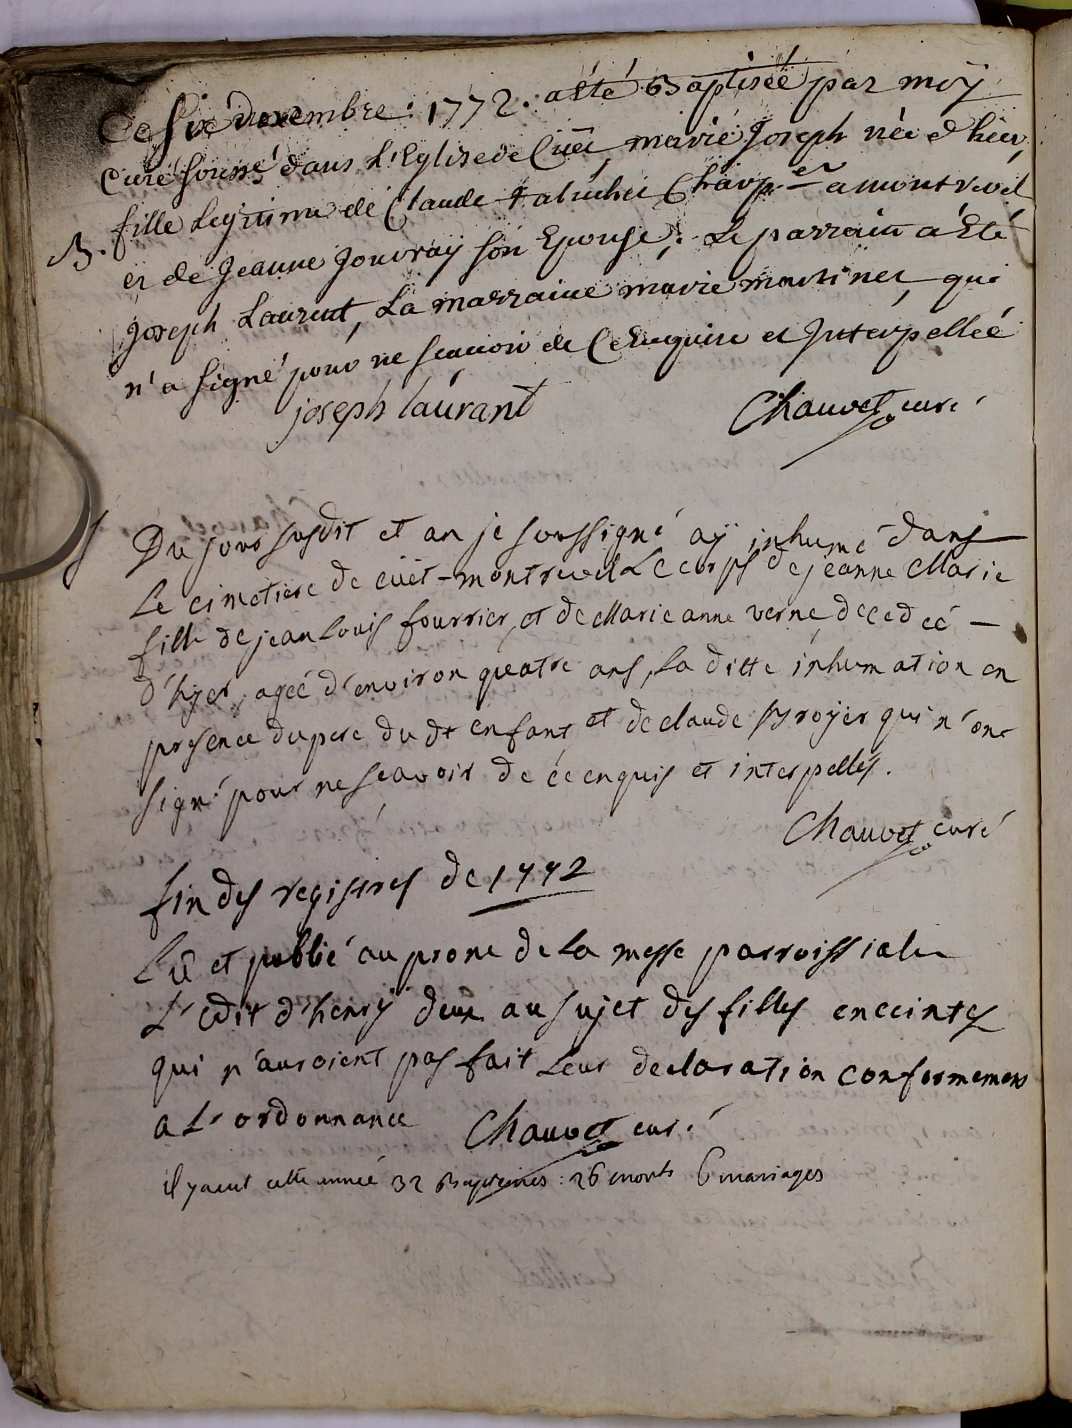 Ce six decembre : 1772 . a été Baptiseé par moÿ
Curé sousné dans L'Eglise de Cüet marie Joseph née d'hier,
B. fille Legitime de Claude Chârp.er a montrevel
et de Jeanne Jouvraÿ son Epouse ; Le parrain a Eté
Joseph Laurent, La marraine marie martinet, qui
n'a signé pour ne scauoir de Ce Enquise et Interpelleé
joseph laurant Chauvet curé
S Du jour susdit et an je soussigné aÿ inhumé dans
Le cimetiere de cüet-montrevel Le corps de jeanne Marie
fille de jean Louis fourrier, et de Marie anne verne decedeé —
d'hyer, ageé d'environ quatre ans, La ditte inhumation en
presence du pere du dt enfant et de claude Broyer qui n'ont
signé pour ne scavoir de ce enquis et interpellés.
Chauvet curé
fin des registres de 1772
Lû et publié au prone de La messe parroissiale
L'edit d'henrÿ deux au sujet des filles enceintes
qui n'auroient pas fait Leur declaration conformement
a L'ordonnance Chauvet curé
il y a eut cette anneé 32 Baptêmes : 26 morts 6 mariages